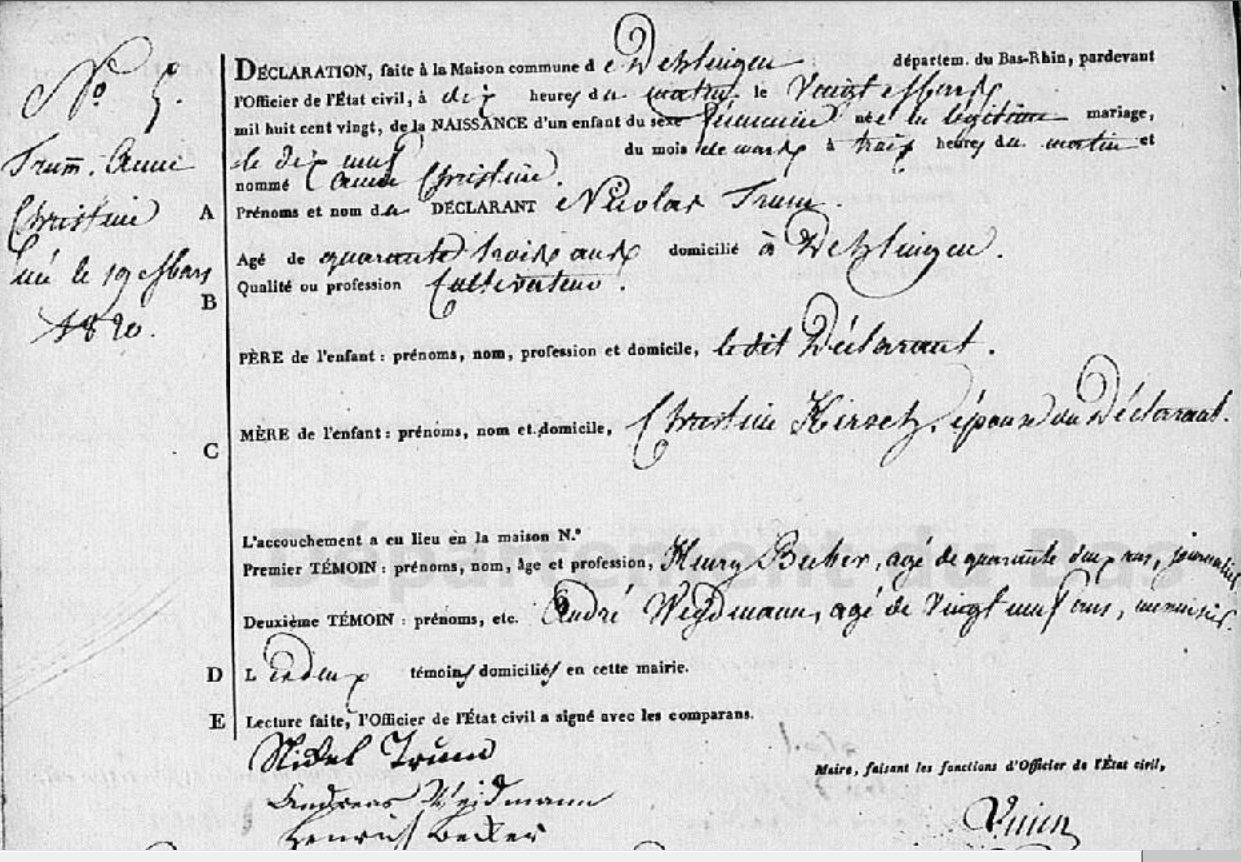 N.° 5.
Trum̄. Anne
Christine
né le 19 Mars
1820.
DÉCLARATION, faite à la Maison commune d e Dehlingen départem. du Bas-Rhin, pardevant
l'Officier de l'État civil, à dix heures du matin le Vingt Mars
mil huit cent vingt, de la NAISSANCE d'un enfant du sexe féminin née en légitime mariage,
le dix neuf du mois de mars à trois heures du matin et
nommé Anne Christine.
A Prénoms et nom du DÉCLARANT Nicolas Trum.
Agé de quarante trois ans domicilié à Dehlingen.
B Qualité ou profession Cultivateur.
PÈRE de l'enfant : prénoms, nom, profession et domicile, le dit Déclarant.
C MÈRE de l'enfant : prénoms, nom et domicile, Christine Kirsch, épouse du Déclarant.
L'accouchement a eu lieu en la maison N.°
Premier TÉMOIN : prénoms, nom, âge et profession, Henry Becker, agé de quarante ans, journalier
Deuxième TÉMOIN : prénoms, etc. André Weydmann, agé de Vingt neuf ans, menuisier.
D L es deux témoins domiciliés en cette mairie.
E Lecture faite, l'Officier de l'État civil a signé avec les comparans.
Nickel Trum
Andreas Weidmann
Henrich Becker
Maire, faisant les fonctions d'Officier de l'État civil,
Département du Bas